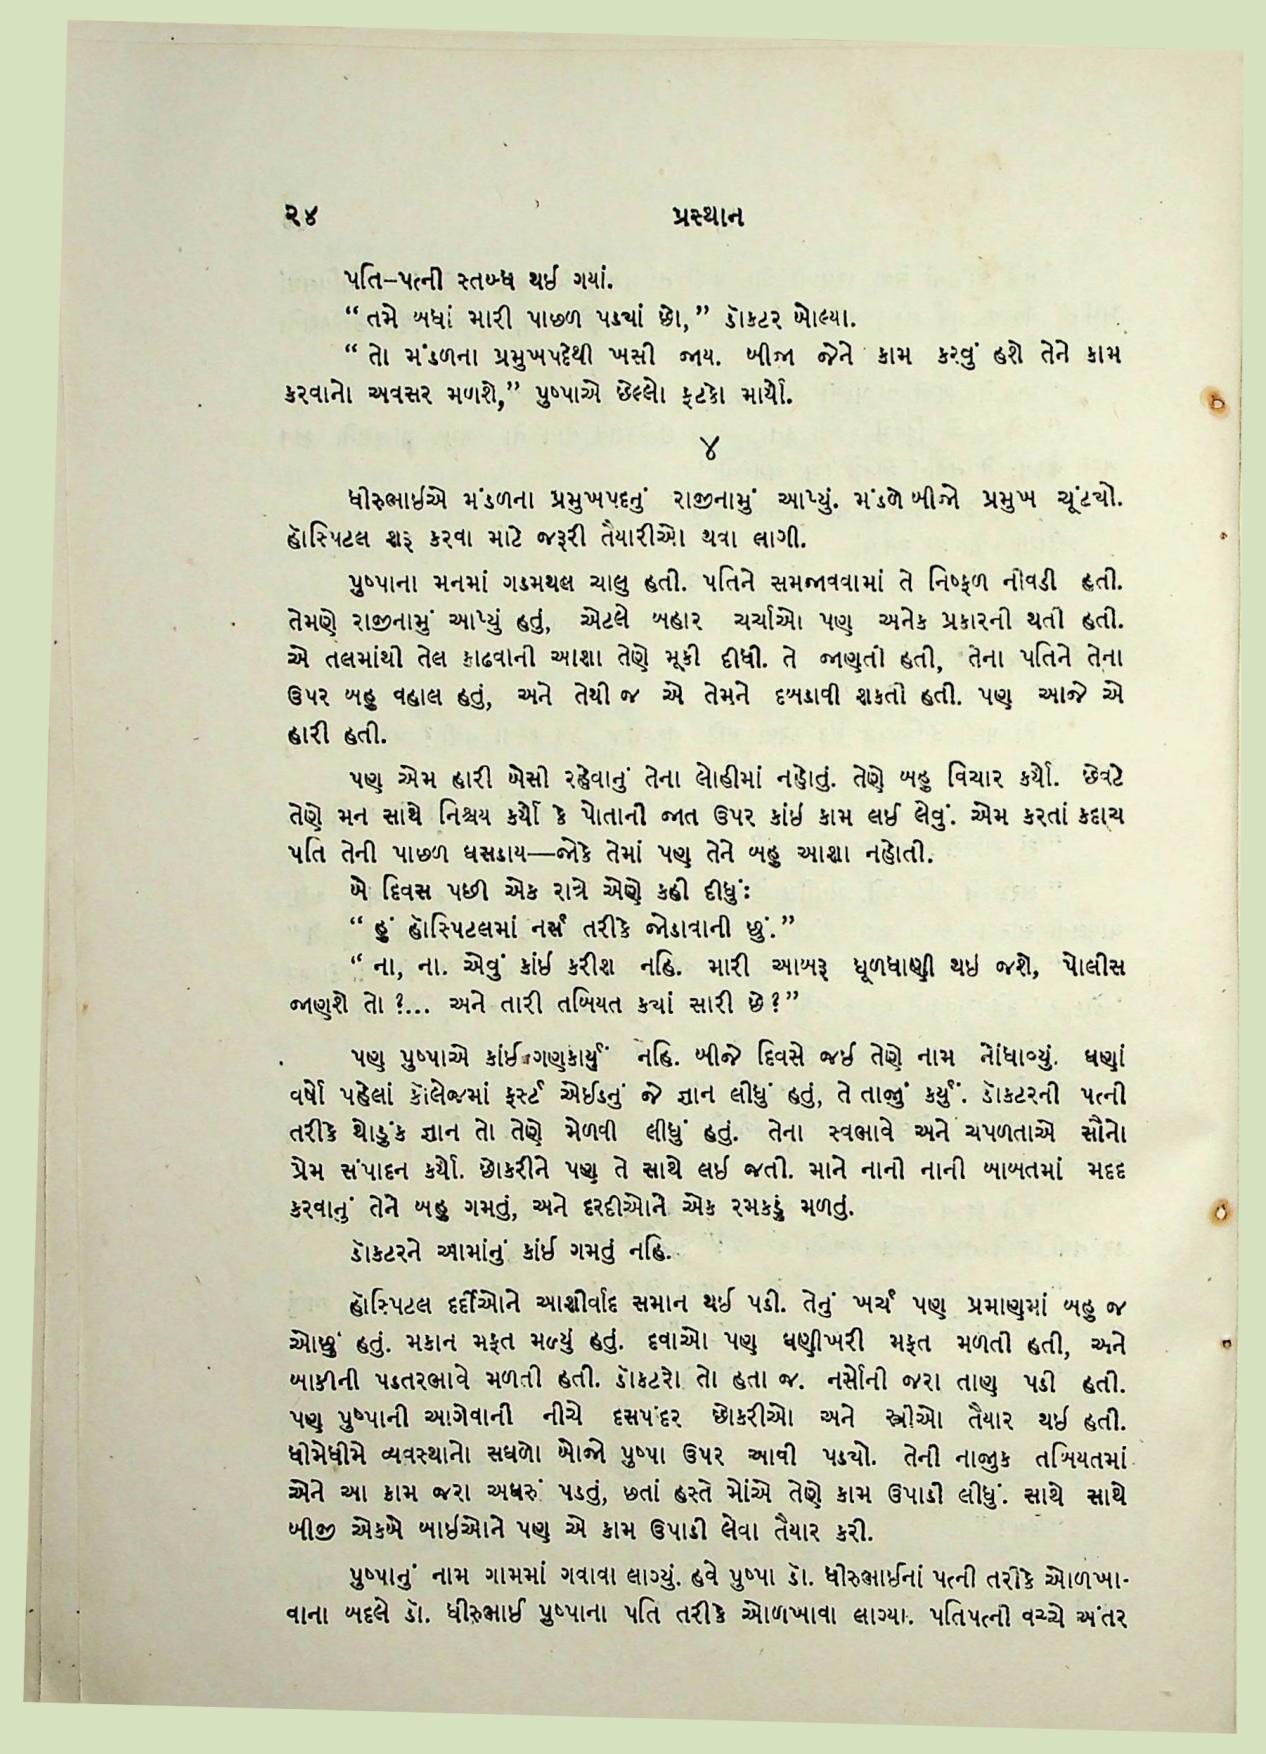 ૨૪
પ્રસ્થાન
પતિ–પત્ની સ્તબ્ધ થઈ ગયાં.
“ તમે બધાં મારી પાછળ પડ્યાં છો,” ડૉકટર બોલ્યા.
“ તો મંડળના પ્રમુખપદેથી ખસી જાય. બીજા જેને કામ કરવું હશે તેને કામ
કરવાનો અવસર મળશે,” પુષ્પાએ છેલ્લો ફટકો માર્યો.
૪
ધીરુભાઈએ મંડળના પ્રમુખપદનું રાજીનામું આપ્યું. મંડળે બીજો પ્રમુખ ચૂંટ્યો.
હૉસ્પિટલ શરૂ કરવા માટે જરૂરી તૈયારીઓ થવા લાગી.
પુષ્પાના મનમાં ગડમથલ ચાલુ હતી. પતિને સમજાવવામાં તે નિષ્ફળ નીવડી હતી.
તેમણે રાજીનામું આપ્યું હતું, એટલે બહાર ચર્ચાઓ પણ અનેક પ્રકારની થતી હતી.
એ તલમાંથી તેલ કાઢવાની આશા તેણે મૂકી દીધી. તે જાણતી હતી, તેના પતિને તેના
ઉપર બહુ વહાલ હતું, અને તેથી જ એ તેમને દબડાવી શકતી હતી. પણ આજે એ
હારી હતી.
પણ એમ હારી બેસી રહેવાનું તેના લોહીમાં નહોતું. તેણે બહુ વિચાર કર્યો. છેવટે
તેણે મન સાથે નિશ્ચય કર્યો કે પોતાની જાત ઉપર કાંઈ કામ લઈ લેવું. એમ કરતાં કદાચ
પતિ તેની પાછળ ઘસડાય—જોકે તેમાં પણ તેને બહુ આશા નહોતી.
બે દિવસ પછી એક રાત્રે એણે કહી દીધું:
“ હું હૉસ્પિટલમાં નર્સ તરીકે જોડાવાની છું.”
“ ના, ના. એવું કાંઈ કરીશ નહિ. મારી આબરૂ ધૂળધાણી થઈ જશે, પોલીસ
જાણશે તો ?... અને તારી તબિયત ક્યાં સારી છે?”
પણ પુષ્પાએ કાંઈ ગણકાર્યું નહિ. બીજે દિવસે જઈ તેણે નામ નોંધાવ્યું. ઘણાં
વર્ષો પહેલાં કૉલેજમાં ફર્સ્ટ એઈડનું જે જ્ઞાન લીધું હતું, તે તાજું કર્યું. ડૉકટરની પત્ની
તરીકે થોડુંક જ્ઞાન તો તેણે મેળવી લીધું હતું. તેના સ્વભાવે અને ચપળતાએ સૌનો
પ્રેમ સંપાદન કર્યો. છોકરીને પણ તે સાથે લઈ જતી. માને નાની નાની બાબતમાં મદદ
કરવાનું તેને બહુ ગમતું, અને દરદીઓને એક રમકડું મળતું.
ડૉકટરને આમાંનું કાંઈ ગમતું નહિ.
હૉસ્પિટલ દર્દીઓને આશીર્વાદ સમાન થઈ પડી. તેનું ખર્ચ પણ પ્રમાણમાં બહુ જ
ઓછું હતું. મકાન મફત મળ્યું હતું. દવાઓ પણ ઘણીખરી મફત મળતી હતી, અને
બાકીની પડતરભાવે મળતી હતી. ડૉકટરો તો હતા જ. નર્સોની જરા તાણ પડી હતી.
પણ પુષ્પાની આગેવાની નીચે દસપંદર છોકરીઓ અને સ્ત્રીઓ તૈયાર થઈ હતી.
ધીમેધીમે વ્યવસ્થાનો સઘળો બોજો પુષ્પા ઉપર આવી પડ્યો. તેની નાજુક તબિયતમાં
એને આ કામ જરા અઘરું પડતું, છતાં હસ્તે મોંએ તેણે કામ ઉપાડી લીધું. સાથે સાથે
બીજી એકબે બાઈઓને પણ એ કામ ઉપાડી લેવા તૈયાર કરી.
પુષ્પાનું નામ ગામમાં ગવાવા લાગ્યું. હવે પુષ્પા ડૉ. ધીરુભાઈનાં પત્ની તરીકે ઓળખા-
વાના બદલે ડૉ. ધીરુભાઈ પુષ્પાના પતિ તરીકે ઓળખાવા લાગ્યા. પતિપત્ની વચ્ચે અંતર